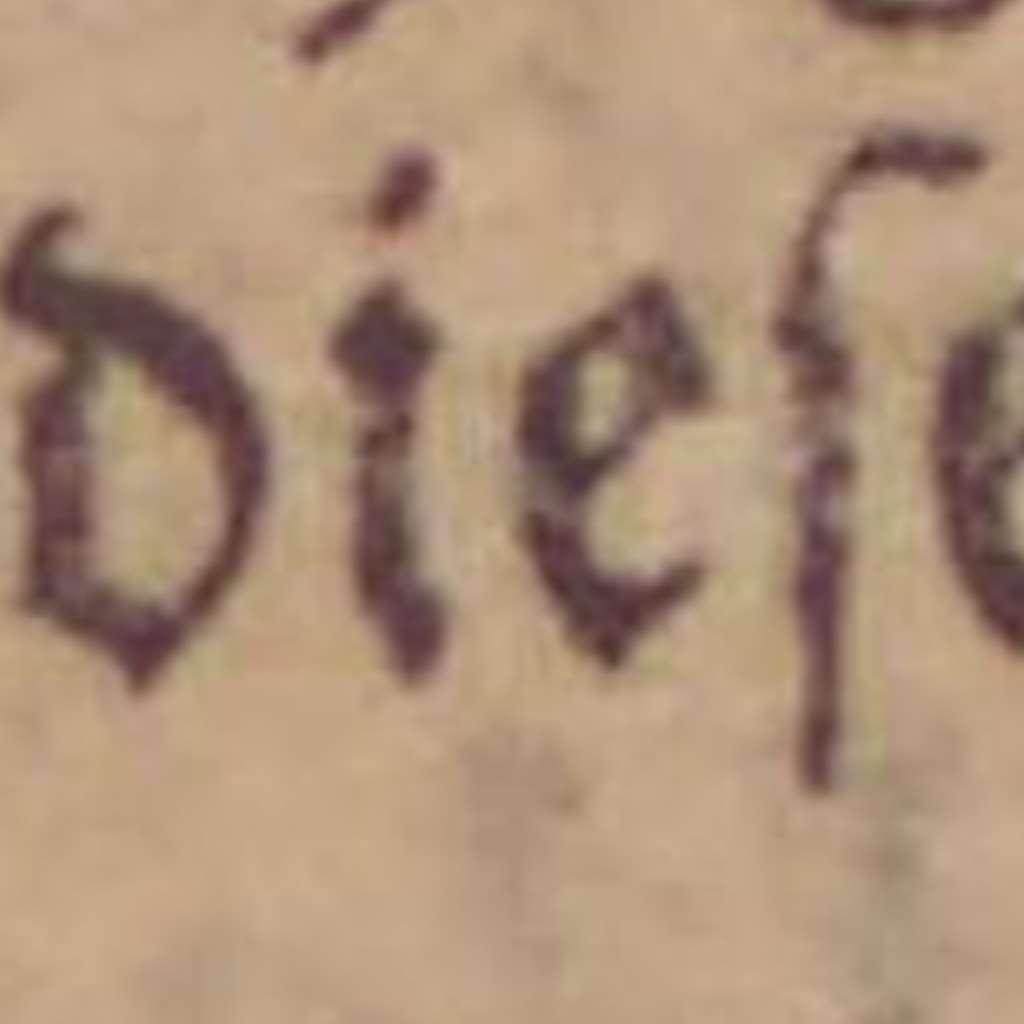 dieſe